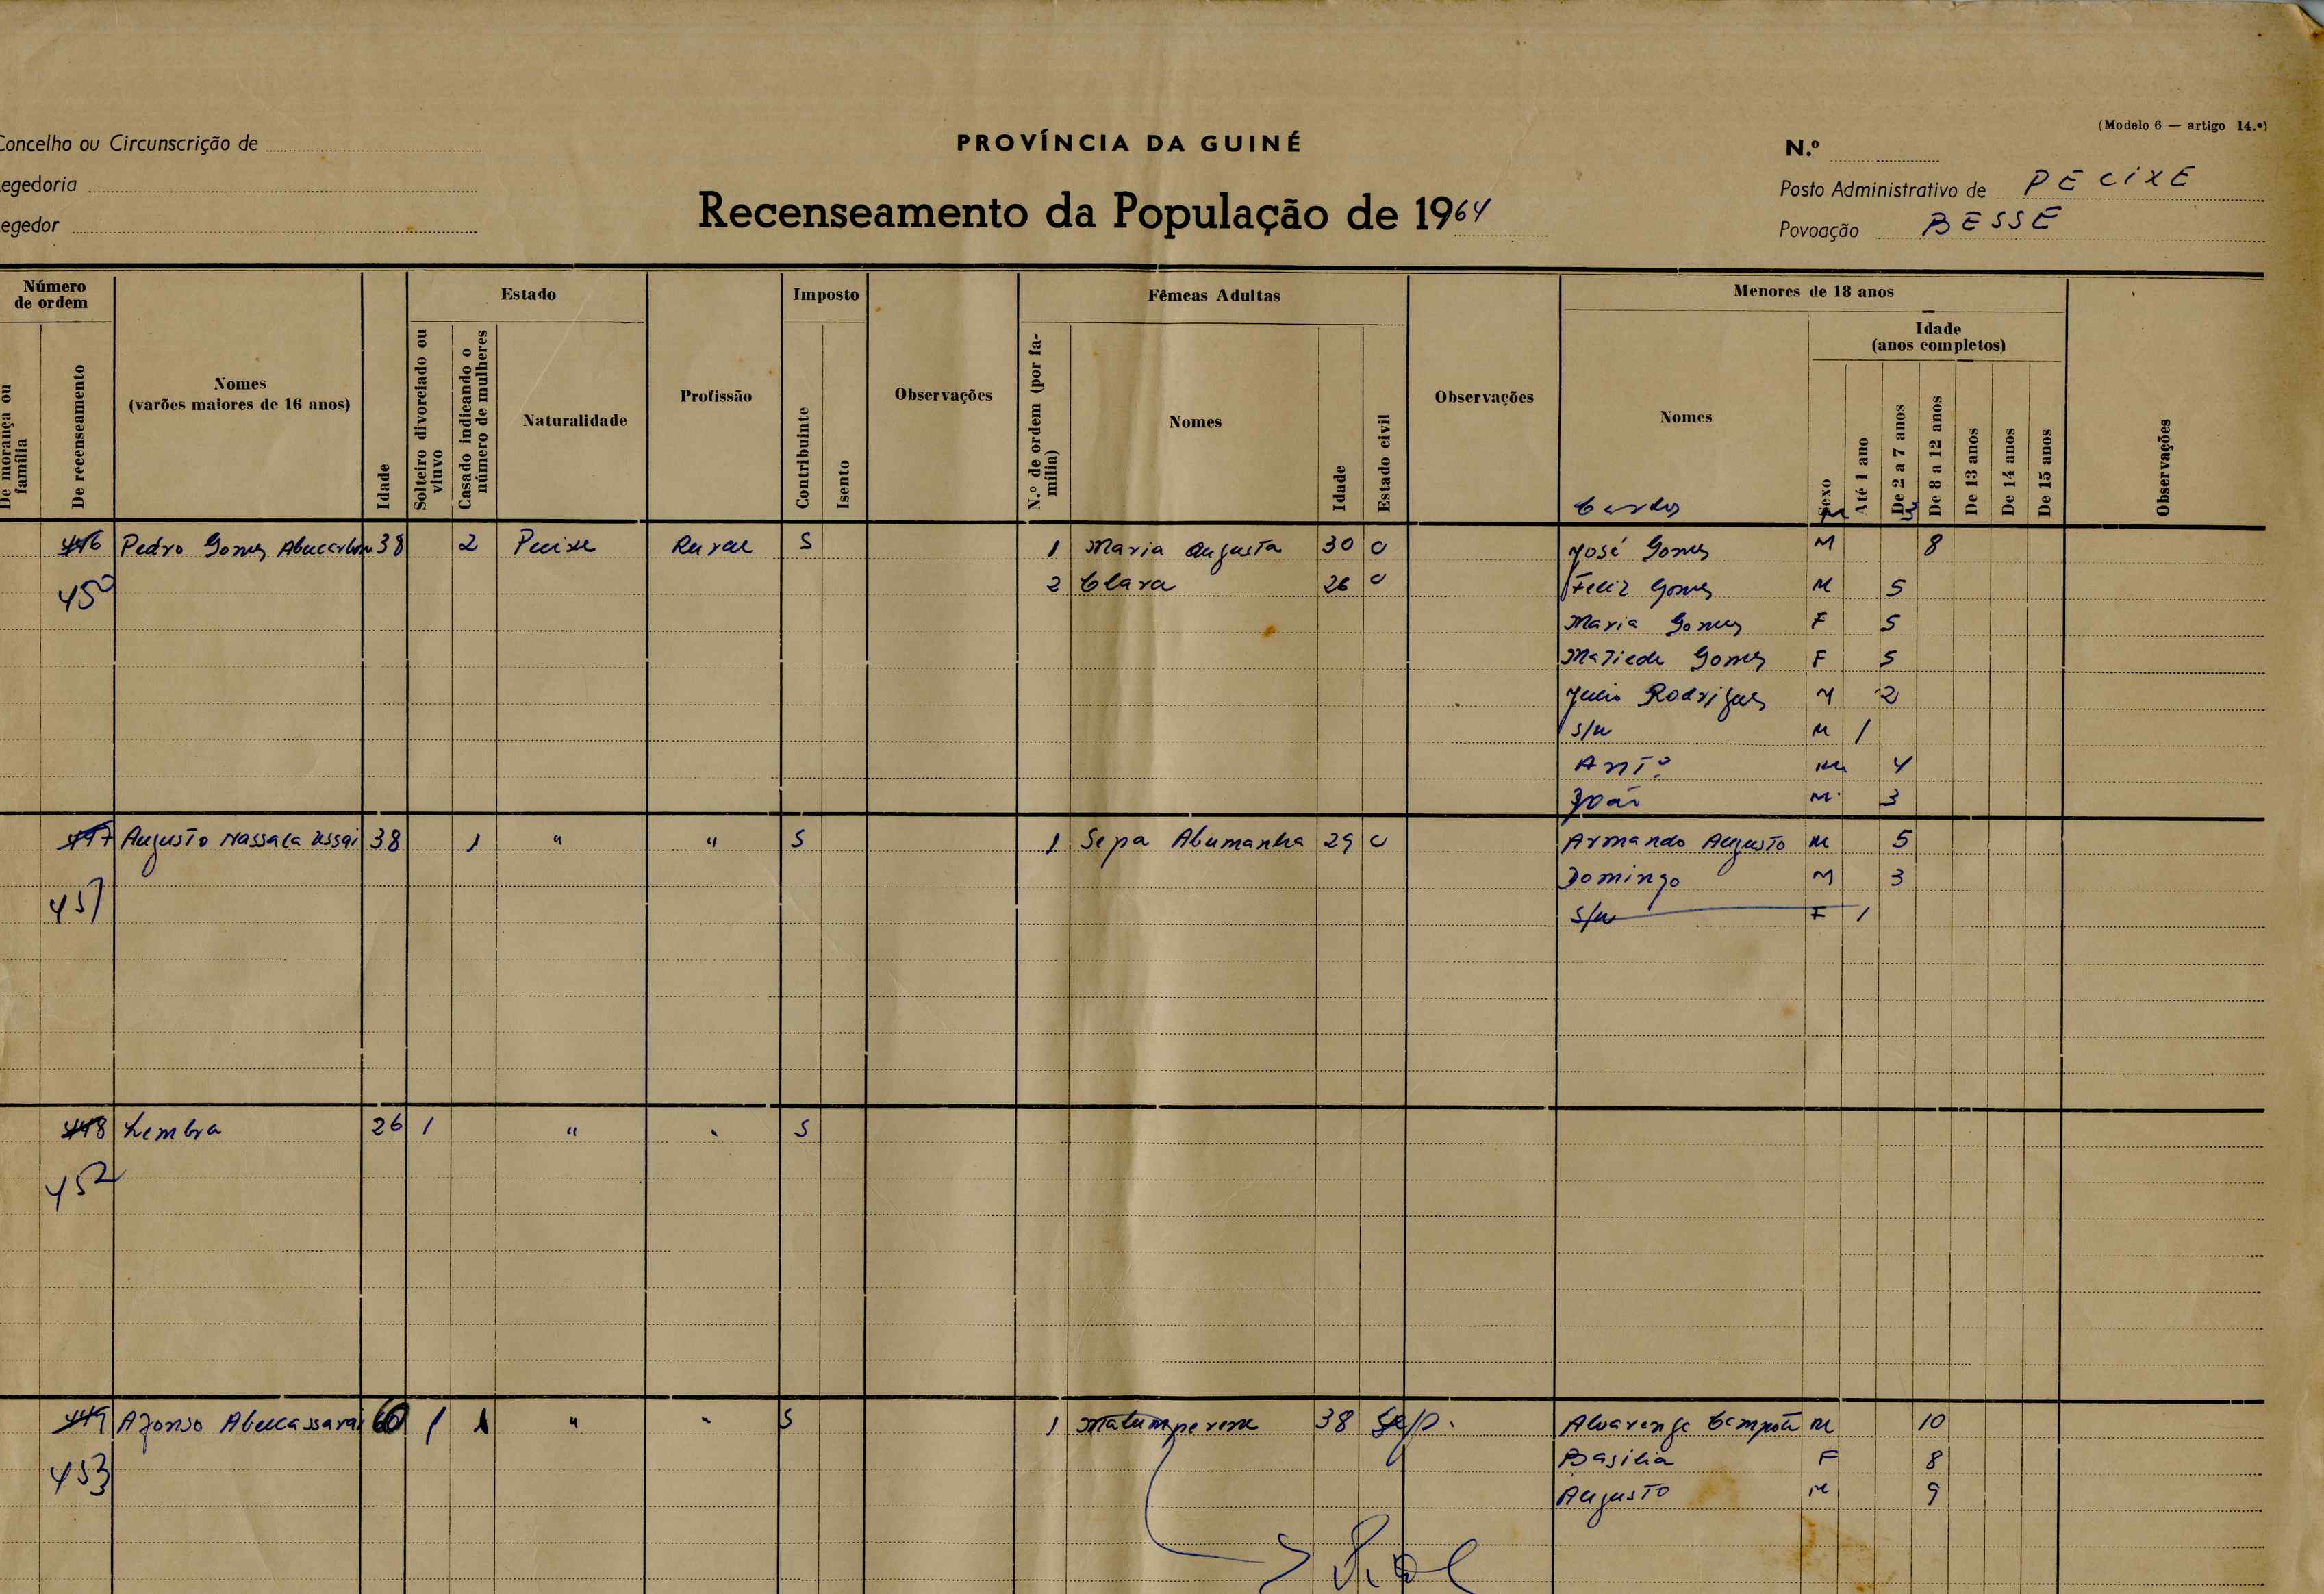 (Modelo 6 — artigo 14.º)
Concelho ou Circunscrição de
PROVÍNCIA DA GUINÉ
N.º
egedoria
Posto Administrativo de PECIXE
Recenseamento da População de 1964
egedor
Povoação BESSE
Número de ordem
Estado
Imposto
Fêmeas Adultas
Menores de 18 anos
De morança ou família
De recenseamento
Nomes
(varões maiores de 16 anos)
Idade
Solteiro divorciado ou viuvo
Casado indicando o número de mulheres
Naturalidade
Profissão
Contribuinte
Isento
Observações
N.º de ordem (por família)
Nomes
Idade
Estado civil
Observações
Nomes
Sexo
Idade
(anos completos)
Até 1 ano
De 2 a 7 anos
De 8 a 12 anos
De 13 anos
De 14 anos
De 15 anos
Observações
446 Pedro Gomes 38 2 Pecixe Rural S 1 Maria Augusta 30 C José Gomes M 8
450 2 Clara 26 C Feliz Gomes M 5
Maria Gomes F 5
Matilde Gomes F 5
Julio Rodrigues M 2
S/n M 1
Antº M 4
João M 3
447 Augusto Nassaca Ussai 38 1 " " S 1 Sepa Abumanha 29 C Armando Augusto M 5
Domingo M 3
451 S/n F 1
448 Lembra 26 1 " " S
452
449 Afonso Abucassarai 60 1 1 " " S 1 38 Alvarenga M 10
453 Basilia F 8
Augusto M 9